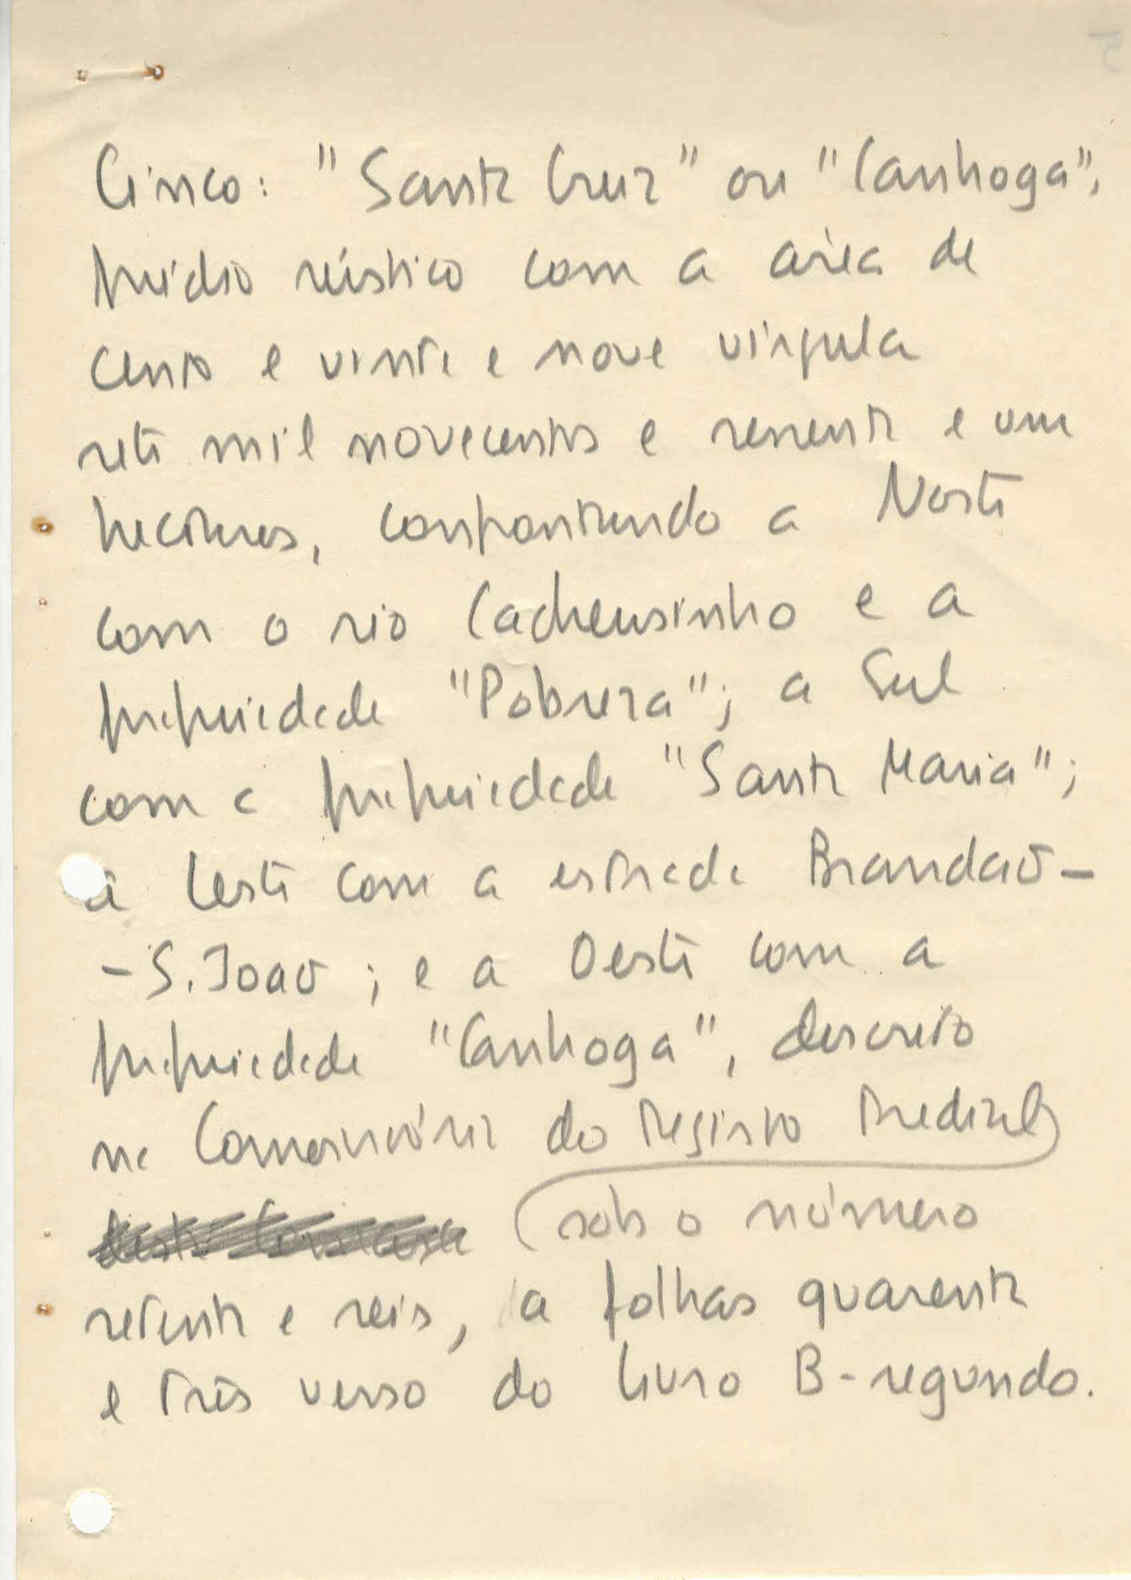 Cinco: "Santa Cruz" ou "Canhoga",
prédio rústico com a área de
cento e vinte e nove vírgula
sete mil novecentos e sessenta e um
hectares, confrontando a Norte
com o rio Cacheusinho e a
propriedade "Pobreza"; a Sul
com a propriedade "Santa Maria";
a Leste com a estrada Brandão-
-S. João; e a Oeste com a
propriedade "Canhoga", descrito
na Conservatória do Registo Predial
sob o número
setenta e seis, a folhas quarenta
e três verso do livro B-segundo.